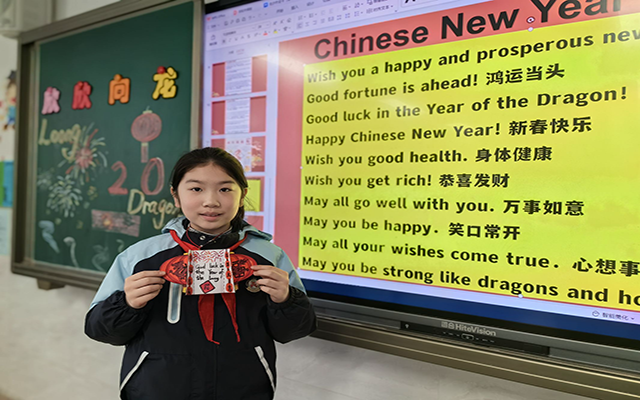 欣欣向龙
Loong
20
Dragon
Chinese New Year
Wish you a happy and prosperous new
Good fortune is ahead! 鸿运当头
Good luck in the Year of the Dragon!
Happy Chinese New Year! 新春快乐
Wish you good health. 身体健康
Wish you get rich! 恭喜发财
May all go well with you. 万事如意
May you be happy. 笑口常开
May all your wishes come true. 心想事
May you be strong like dragons and ho
HiteVision